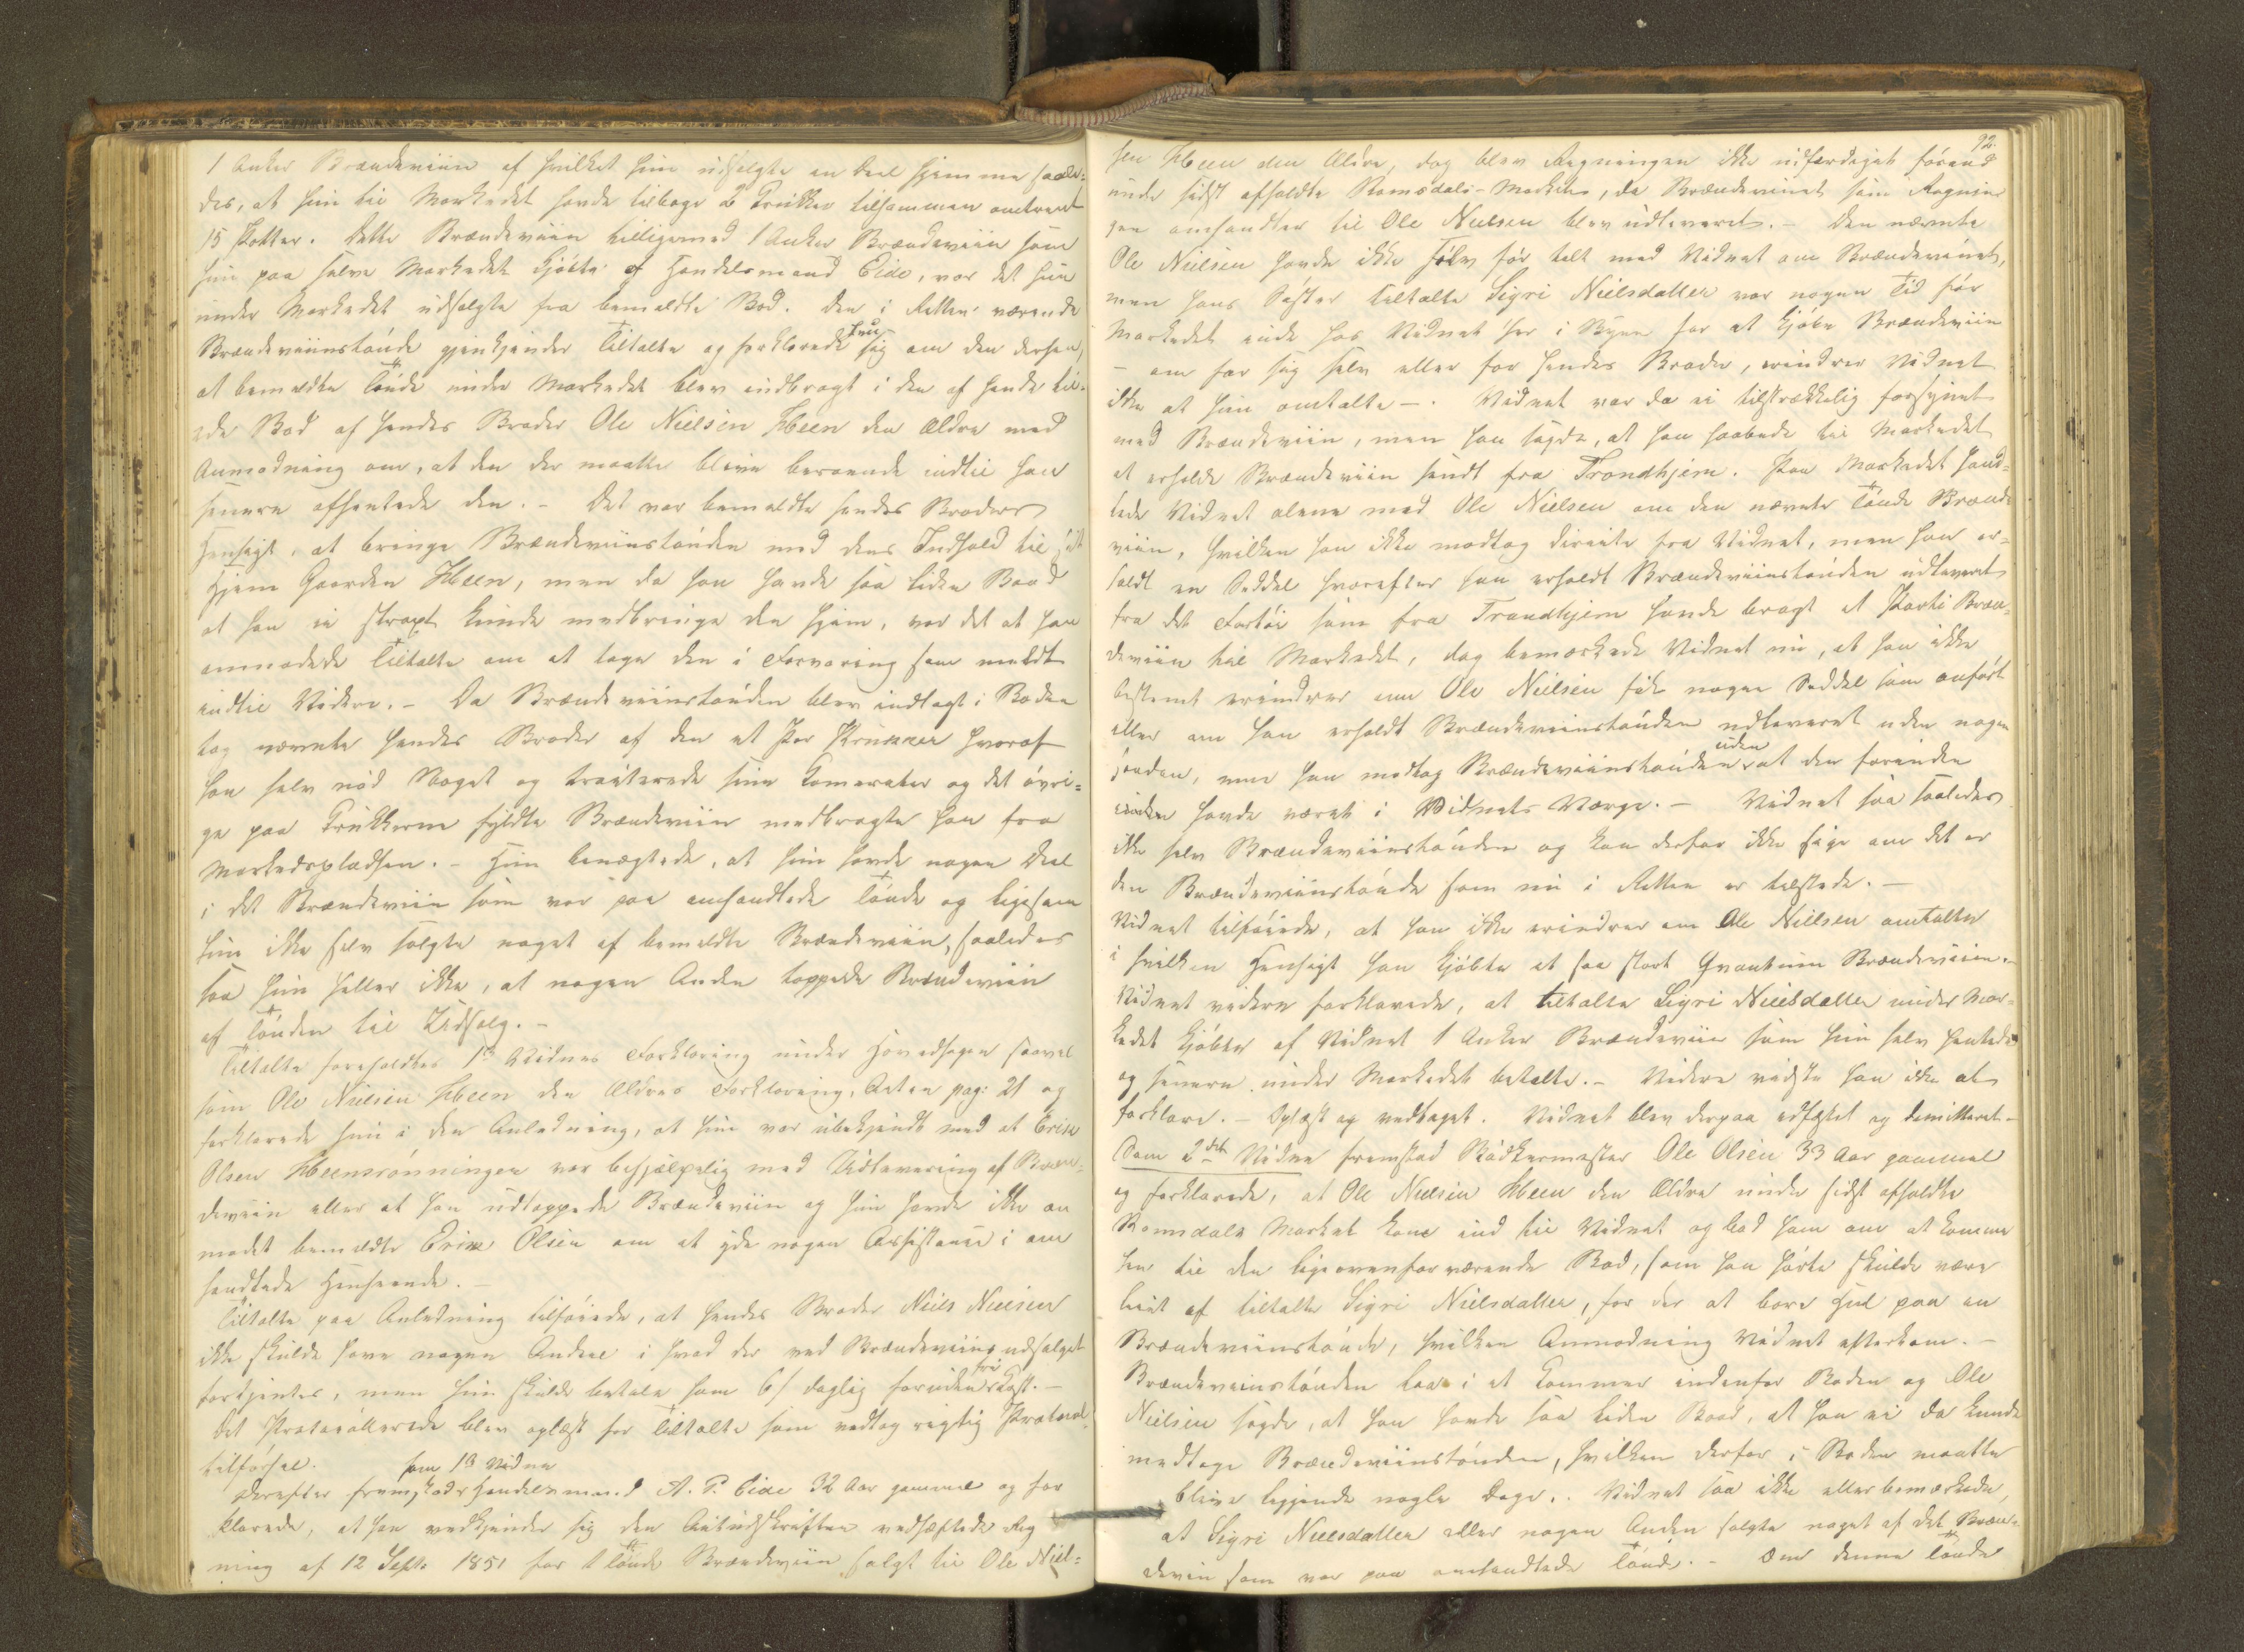 1 Anker Brændeviin af hvilket hun udsolgte en Deel hjemme saale-
des, at hun til Markedet havde tilbage 2 Trukker tilsammen omtrent
15 Potter. Dette Brændeviin tilligemed 1 Anker Brændeviin som
hun paa selve Markedet kjøbte af Handelsmand Eide, var det hun
under Markedet udsolgte fra bemeldte Bod. Den i Retten værende
Brændeviinstønde gjenkjender Tiltalte og forklarede hun sig om den derhen,
at bemeldte Tønde under Markedet blev indbragt i den af hende lei-
ede Bod af hendes Broder Ole Nielsen Heen den Ældre med
Anmodning om, at den der maatte blive beroende indtil han
senere afhentede den. - Det var bemeldte hendes Broders
Hensigt, at bringe Brændeviinstønden med dens Indhold til sit
Hjem Gaarden Heen, men da han havde saa liden Baad
at han ei strax kunde medbringe den hjem, var det at han
anmodede Tiltalte om at tage den i Forvaring som meldt
indtil Videre. - Da Brændeviinstønden blev indlagt i Boden
tog nævnte hendes Broder af den et Par Krukker hvoraf
han selv nød Noget og tracterede sine Kamerater og det øvri-
ge paa Trukkerne fyldte Brændeviin medbragte han fra
Markedspladsen. - Hun benægtede, at hun havde nogen Deel
i det Brændeviin som var paa omhandlede Tønde og ligesom
hun ikke selv solgte noget af bemeldte Brændeviin, saaledes
saa hun heller ikke, at nogen Anden tappede Brændeviin
af Tønden til Udsalg. -
Tiltalte foreholdtes 1ste Vidnes Forklaring under Hovedsagen saavel
som Ole Nielsen Heen den Ældres Forklaring, Acten pag: 21 og
forklarede hun i den Anledning, at hun var ubekjendt med at Erik
Olsen Heensrønningen var behjælpelig med Udlevering af Bræn-
deviin eller at han udtappede Brændeviin og hun havde ikke an
modet bemeldte Erik Olsen om at yde nogen Assistance i om
handlede Henseende. -
Tiltalte paa Anledning tilføiede, at hendes Broder Niels Nielsen
ikke skulde have nogen Andeel i hvad der ved Brændeviins udsalget
fortjentes, men hun skulde betale ham 6/ daglig foruden fri Kost. -
Det Protocollerede blev oplæst for Tiltalte som vedtog rigtig Protocol
tilførsel. som 1ste Vidne
Derefter fremstod Handelsmand A. P. Eide 32 Aar gammel og for
klarede, at han vedkjender sig den Actudskriften vedhæftede Reg
ning af 12 Sept. 1851 for 1 Tønde Brændeviin solgt til Ole Niel-
92.
sen Heen den Ældre, dog blev Regningen ikke udfærdiget førend
under sidst afholdte Romsdals-Marked, da Brændevinet som Regnin
gen omhandler til Ole Nielsen blev udleveret. - Den nævnte
Ole Nielsen havde ikke selv før talt med Vidnet om Brændevinet,
men hans Søster tiltalte Sigri Nielsdatter var nogen Tid før
Markedet inde hos Vidnet her i Byen for at kjøbe Brændeviin
- om for sig selv eller for hendes Broder, erindrer Vidnet
ikke at hun omtalte -. Vidnet var da ei tilstrækkelig forsynet
med Brændeviin, men han sagde, at han haabede til Markedet
at erholde Brændeviin sendt fra Trondhjem. Paa Markedet hand-
lede Vidnet alene med Ole Nielsen om den nævnte Tønde Brænde
viin, hvilken han ikke modtog directe fra Vidnet, men han er-
holdt en Seddel hvorefter han erholdt Brændeviinstønden udleveret
fra det Fartøi som fra Trondhjem havde bragt et Parti Bræn-
deviin til Markedet, dog bemærkede Vidnet nu, at han ikke
bestemt erindrer om Ole Nielsen fik nogen Seddel som anført
eller om han erholdt Brændeviinstønden udleveret uden nogen
saadan, men han modtog Brændeviinstønden uden at den forinden
havde været i Vidnets Værge. - Vidnet saa saaledes
ikke selv Brændeviinstønden og kan derfor ikke sige om det er
den Brændeviinstønde som nu i Retten er tilstede. -
Vidnet tilføiede, at han ikke erindrer om Ole Nielsen omtalte
i hvilken Hensigt han kjøbte et saa stort Qvantum Brændeviin.
Vidnet videre forklarede, at tiltalte Sigri Nielsdatter under Mar-
kedet kjøbte af Vidnet 1 Anker Brændeviin som hun selv hentede
og senere under Markedet betalte. - Videre vidste han ikke at
forklare. - Oplæst og vedtaget. Vidnet blev derpaa edfæstet og dimitteret. -
Som 2det Vidne fremstod Bødkermester Ole Olsen 33 Aar gammel
og forklarede, at Ole Nielsen Heen den Ældre under sidst afholdte
Romsdals Marked kom ind til Vidnet og bad ham om at komme
hen til den ligeovenfor værende Bod, som han hørte skulde være
leiet af tiltalte Sigri Nielsdatter, for der at bore Hul paa en
Brændeviinstønde, hvilken Anmodning Vidnet efterkom. -
Brændeviinstønden laa i et Kammer indenfor Boden og Ole
Nielsen sagde, at han havde saa liden Baad, at han ei da kunde
medtage Brændeviinstønden, hvilken derfor i Boden maatte
blive liggende nogle Dage. Vidnet saa ikke eller bemærkede,
at Sigri Nielsdatter eller nogen Anden solgte noget af det Bræn-
deviin som var paa omhandlede Tønde. - Om denne Tønde